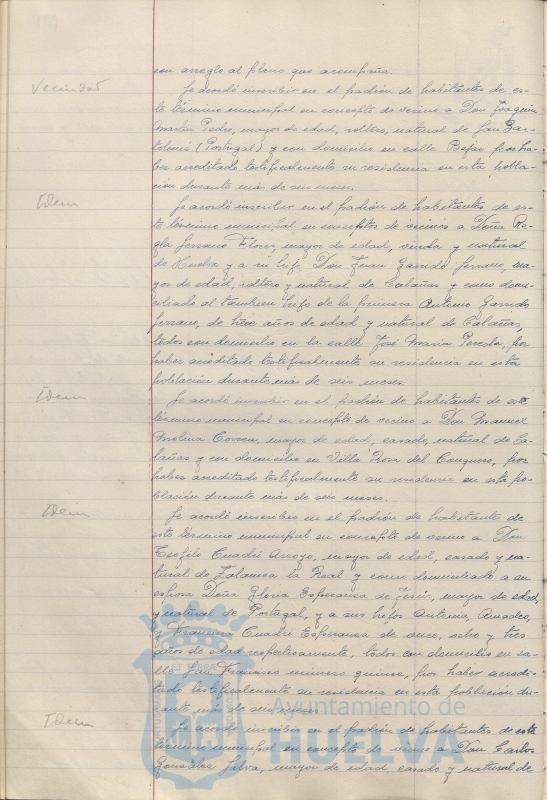 con arreglo al pleno que acompaña.
Vecindad
Se acordó inscribir en el padrón de habitantes de es-
te término municipal en concepto de vecino a Don Joaquin
Martin Pedro, mayor de edad, soltero, natural de San Bar-
tolomé (Portugal) y con domicilio en calle Bejar por ha-
ber acreditado testificalmente su residencia en esta pobla-
ción durante más de seis meses.
Idem
Se acordó inscribir en el padrón de habitantes de es-
te término municipal en conceptos de vecinos a Doña Re-
gla Serrano Flores, mayor de edad, viuda y natural
de Huelva y a su hijo Don Juan Garrido Serrano, ma-
yor de edad, soltero y natural de Calañas y como domi-
ciliado al tambien hijo de la primera Antonio Garrido
Serrano, de trece años de edad y natural de Calañas,
todos con domicilio en la calle José Maria Pereda, por
haber acreditado testificalmente su residencia en esta
población durante más de seis meses.
Idem
Se acordó inscribir en el padrón de habitantes de este
término municipal en concepto de vecino a Don Manuel
Molina Correa, mayor de edad, casado, natural de Ca-
lañas y con domicilio en Villa Rosa del Conquero, por
haber acreditado testificalmente su residencia en esta po-
blación durante más de seis meses.
Idem
Se acordó inscribir en el padrón de habitantes de
este término municipal en concepto de vecino a Don
Teofilo Cuadri Arroyo, mayor de edad, casado y na-
tural de Zalamea la Real y como domiciliado a su
esposa Doña Gloria Esperanza de Jesús, mayor de edad,
y natural de Portugal, y a sus hijos Antonia, Amadeo,
y Francisca Cuadri Esperanza de once, ocho y tres
años de edad respectivamente, todos con domicilio en ca-
lle San Francisco número quince, por haber acredi-
tado testificalmente su residencia en esta población du-
rante más de seis meses
Idem
Se acordó inscribir en el padrón de habitantes de este
término municipal en concepto de vecino a Don Carlos
González Silva, mayor de edad, casado y natural de
Ayuntamiento de
HUELVA